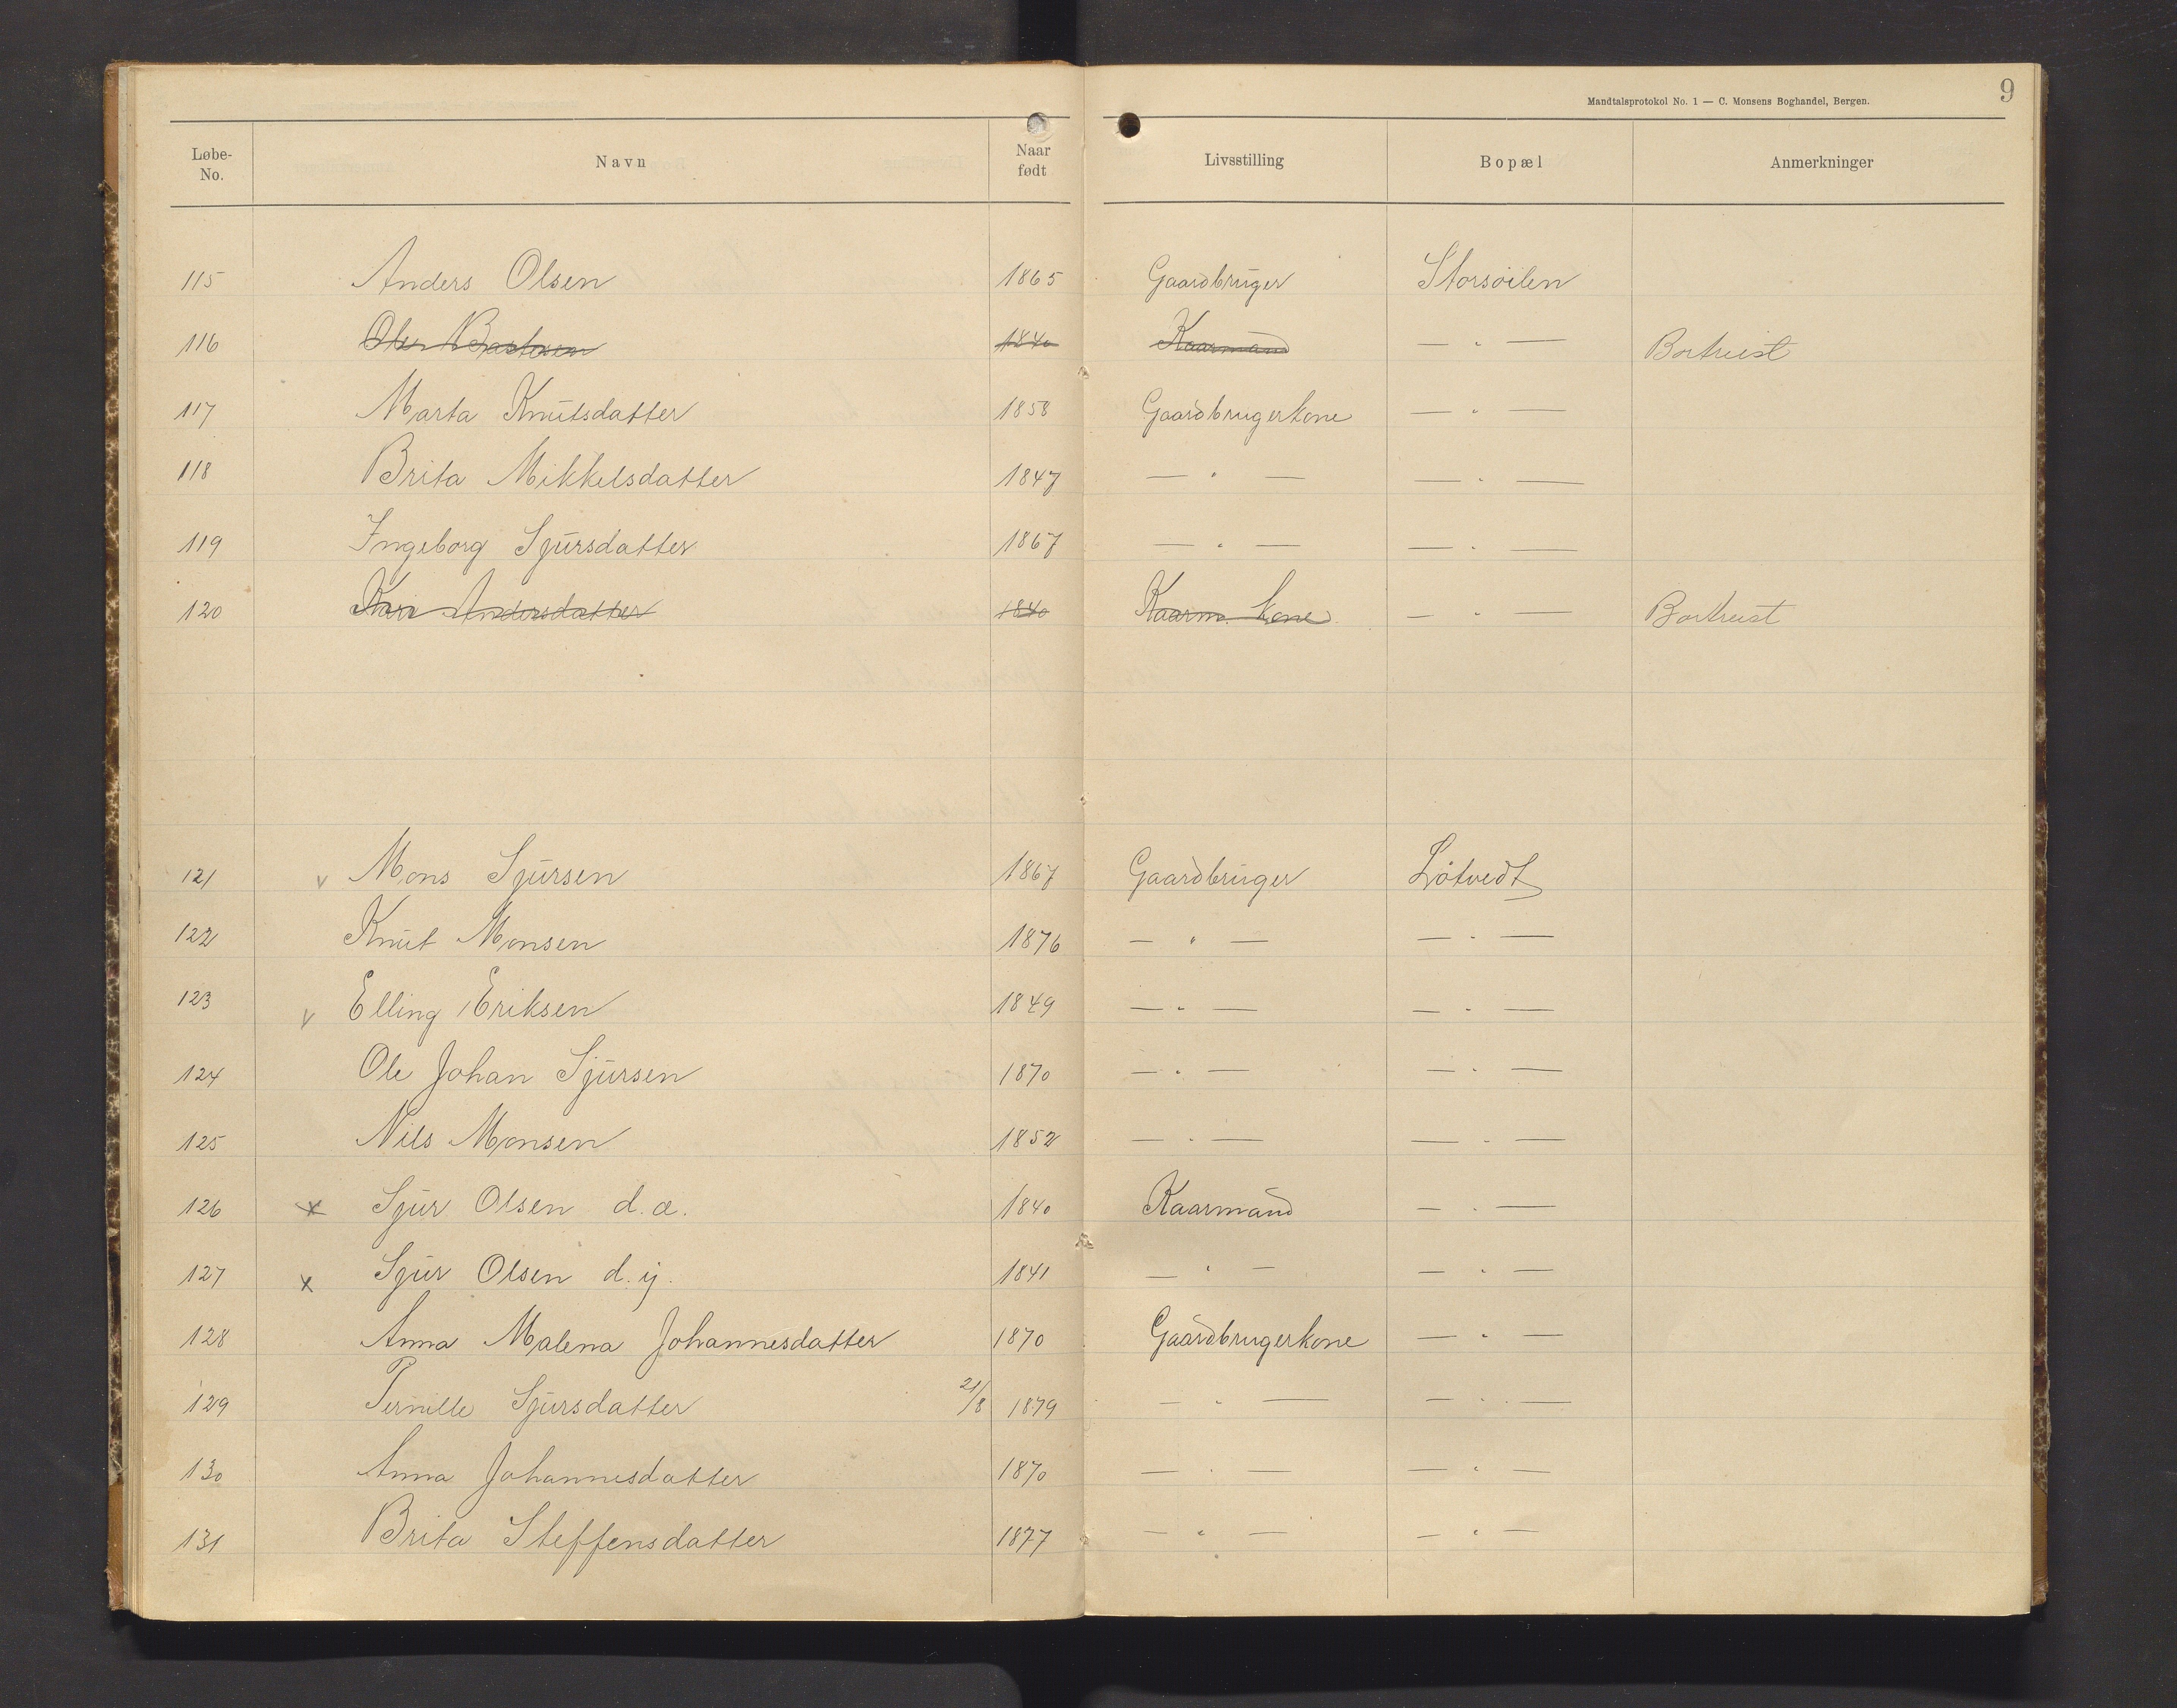 Mandtalsprotokol No. 1 — C. Monsens Boghandel, Bergen. 9
Løbe-No. Navn Naar født Livsstilling Bopæl Anmerkninger
115 Anders Olsen 1865 Gaardbruger Storsøilen
116 Ole 1840 Kaarmand — " — Bortreist
117 Marta Knutsdatter 1858 Gaardbrugerkone — " —
118 Brita Mikkelsdatter 1847 — " — — " —
119 Ingeborg Sjursdatter 1867 — " — — " —
120 Kari Andersdatter 1840 Kaarm. kone — " — Bortreist
121 v Mons Sjursen 1867 Gaardbruger Løtvedt
122 Knut Monsen 1876 — " — — " —
123 v Elling Eriksen 1849 — " — — " —
124 Ole Johan Sjursen 1870 — " — — " —
125 Nils Monsen 1852 — " — — " —
126 x Sjur Olsen d.æ. 1840 Kaarmand — " —
127 x Sjur Olsen d.y. 1841 — " — — " —
128 Anna Malena Johannesdatter 1870 Gaardbrugerkone — " —
129 Pernille Sjursdatter 21/8 1879 — " — — " —
130 Anna Johannesdatter 1870 — " — — " —
131 Brita Steffensdatter 1877 — " — — " —